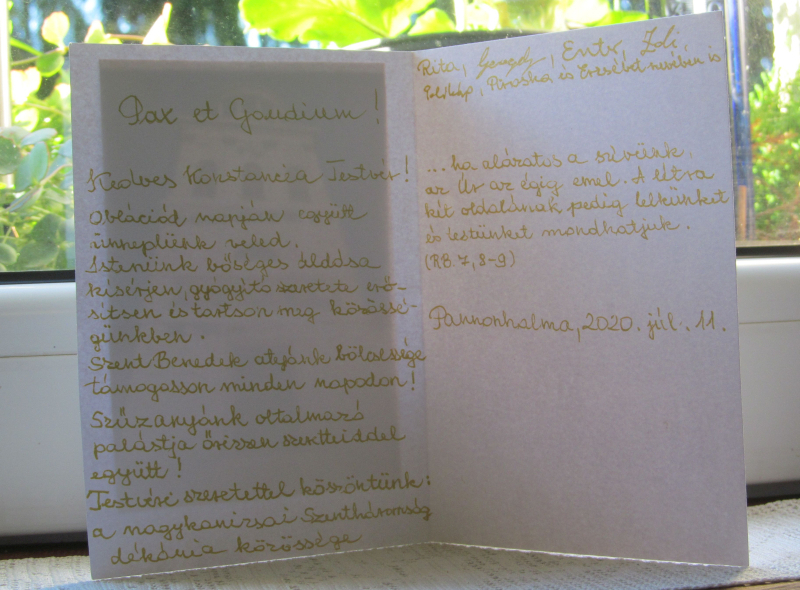 Pax et Gaudium!
Kedves Konstancéa Testvér!
Oblációd napján együtt
ünneplünk veled.
Istenünk bőséges áldása
kisérjen, gyógyító szeretete erő-
sítsen és tartson meg közössé-
günkben.
Szent Benedek atyánk bölcsessége
támogasson minden napodon!
Szűzanyánk oltalmazó
palástja őrizzen szeretteiddel
együtt!
Testvéri szeretettel köszöntünk:
a nagykanizsai Szentháromság
dékánia közössége
Rita, Enty, Zoli,
Piroska és Erzsébet nevében is
...ha alázatos a szívünk,
az Úr az égig emel. A létra
két oldalának pedig lelkünket
és testünket mondhatjuk.
(RB. 7, 8-9)
Pannonhalma, 2020. júl. 11.